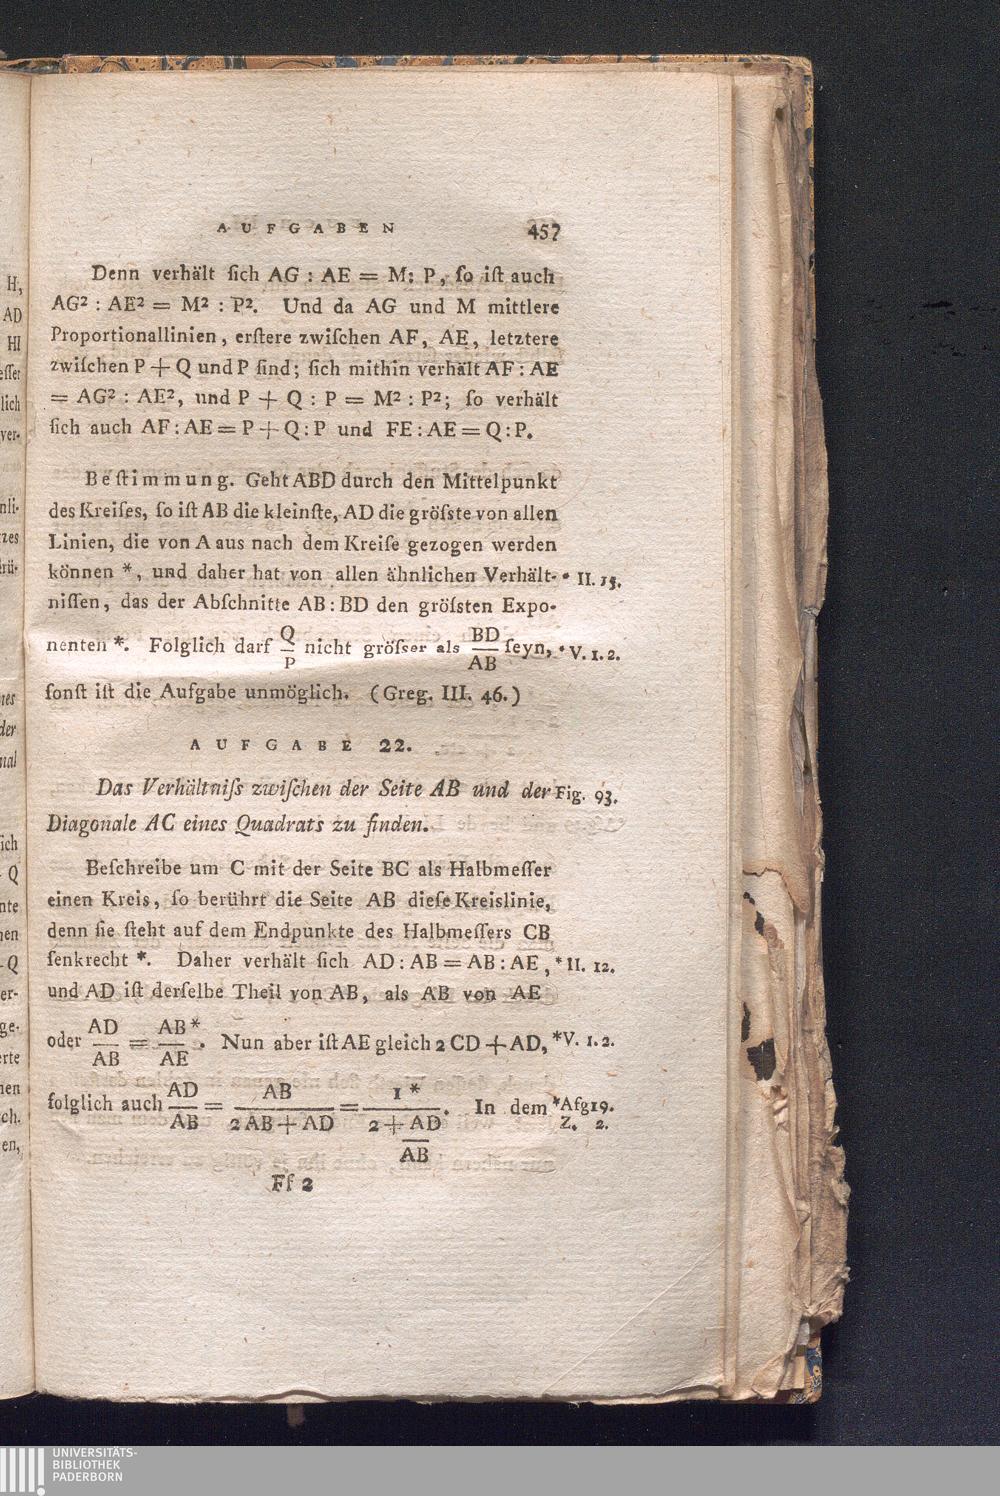 AUFGABEN 457
Denn verhält ſich AG : AE = M : P, ſo iſt auch
AG² : AE² = M² : P². Und da AG und M mittlere
Proportionallinien, erſtere zwiſchen AF, AE, letztere
zwiſchen P + Q und P ſind; ſich mithin verhält AF : AE
= AG² : AE², und P + Q : P = M² : P²; ſo verhält
ſich auch AF : AE = P + Q : P und FE : AE = Q : P.
Beſtimmung. Geht ABD durch den Mittelpunkt
des Kreiſes, ſo iſt AB die kleinſte, AD die gröſste von allen
Linien, die von A aus nach dem Kreiſe gezogen werden
können *, und daher hat von allen ähnlichen Verhält- * II. 15.
niſſen, das der Abſchnitte AB : BD den gröſsten Expo-
nenten *. Folglich darf Q/P nicht gröſser als BD/AB ſeyn, * V. 1. 2.
ſonſt iſt die Aufgabe unmöglich. (Greg. III. 46.)
AUFGABE 22.
Das Verhältniſs zwiſchen der Seite AB und der Fig. 93.
Diagonale AC eines Quadrats zu finden.
Beſchreibe um C mit der Seite BC als Halbmeſſer
einen Kreis, ſo berührt die Seite AB dieſe Kreislinie,
denn ſie ſteht auf dem Endpunkte des Halbmeſſers CB
ſenkrecht *. Daher verhält ſich AD : AB = AB : AE, * II. 12.
und AD iſt derſelbe Theil von AB, als AB von AE
oder AD/AB = AB/AE *. Nun aber iſt AE gleich 2 CD + AD, * V. 1. 2.
folglich auch AD/AB = AB/(2 AB + AD) = 1/(2 + AD/AB) *. In dem * Afg 19.
Z. 2.
Ff 2
H,
AD
HI
eſſer
lich
ver-
nli-
zes
rü-
nes
der
mal
ich
Q
nte
nen
-Q
er-
ge-
erte
nen
ch.
en,
UNIVERSITÄTS-
BIBLIOTHEK
PADERBORN